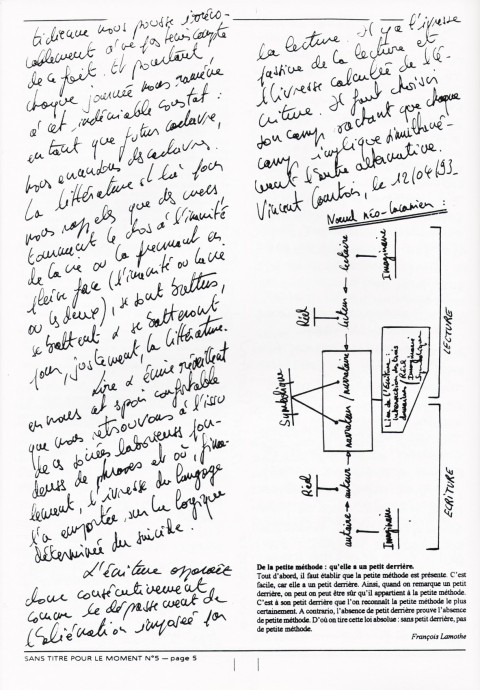 tidienne nous pousse irrévo-
cablement à ne pas tenir compte
de ce fait. Et pourtant
chaque journée nous ramène
à cet indéniable constat :
en tant que futur cadavre,
nous engendrons des cadavres.
La littérature est là pour
nous rappeler que des mecs
tournant le dos à l'inanité
de la vie ou la prenant en
pleine face (l'inanité ou la vie
ou les deux), se sont battus,
se battent & se battront
pour, justement, la littérature.
Lire & écrire réveillent
en nous cet espoir confortable
que nous retrouvons à l'issue
de ces soirées laborieuses
de phrases et où, fina-
lement, l'ivresse du langage
l'a emporté sur la logique
déterminée du suicide.
L'écriture apparaît
donc consécutivement
comme le dépassement de
l'aliénation imposée par
la lecture. Il y a l'ivresse
passive de la lecture et
l'ivresse calculée de l'é-
criture. Il faut choisir
son camp, sachant que chaque
camp implique simultané-
ment l'autre alternative.
Vincent Courtois, le 12/04/93.
Noeud néo-lacanien :
Symbolique
Réel
Réel
autaire
auteur
narrateur / narrataire
lecteur
lectaire
Imaginaire
Imaginaire
Lieu de l'écriture :
intersection des trois
domaines : Réel
Imaginaire
Symbolique
ECRITURE
LECTURE
De la petite méthode : qu'elle a un petit derrière.
Tout d'abord, il faut établir que la petite méthode est présente. C'est
facile, car elle a un petit derrière. Ainsi, quand on remarque un petit
derrière, on peut on peut être sûr qu'il appartient à la petite méthode.
C'est à son petit derrière que l'on reconnaît la petite méthode le plus
certainement. A contrario, l'absence de petit derrière prouve l'absence
de petite méthode. D'où on tire cette loi absolue : sans petit derrière, pas
de petite méthode.
François Lamothe
SANS TITRE POUR LE MOMENT N°5 — page 5